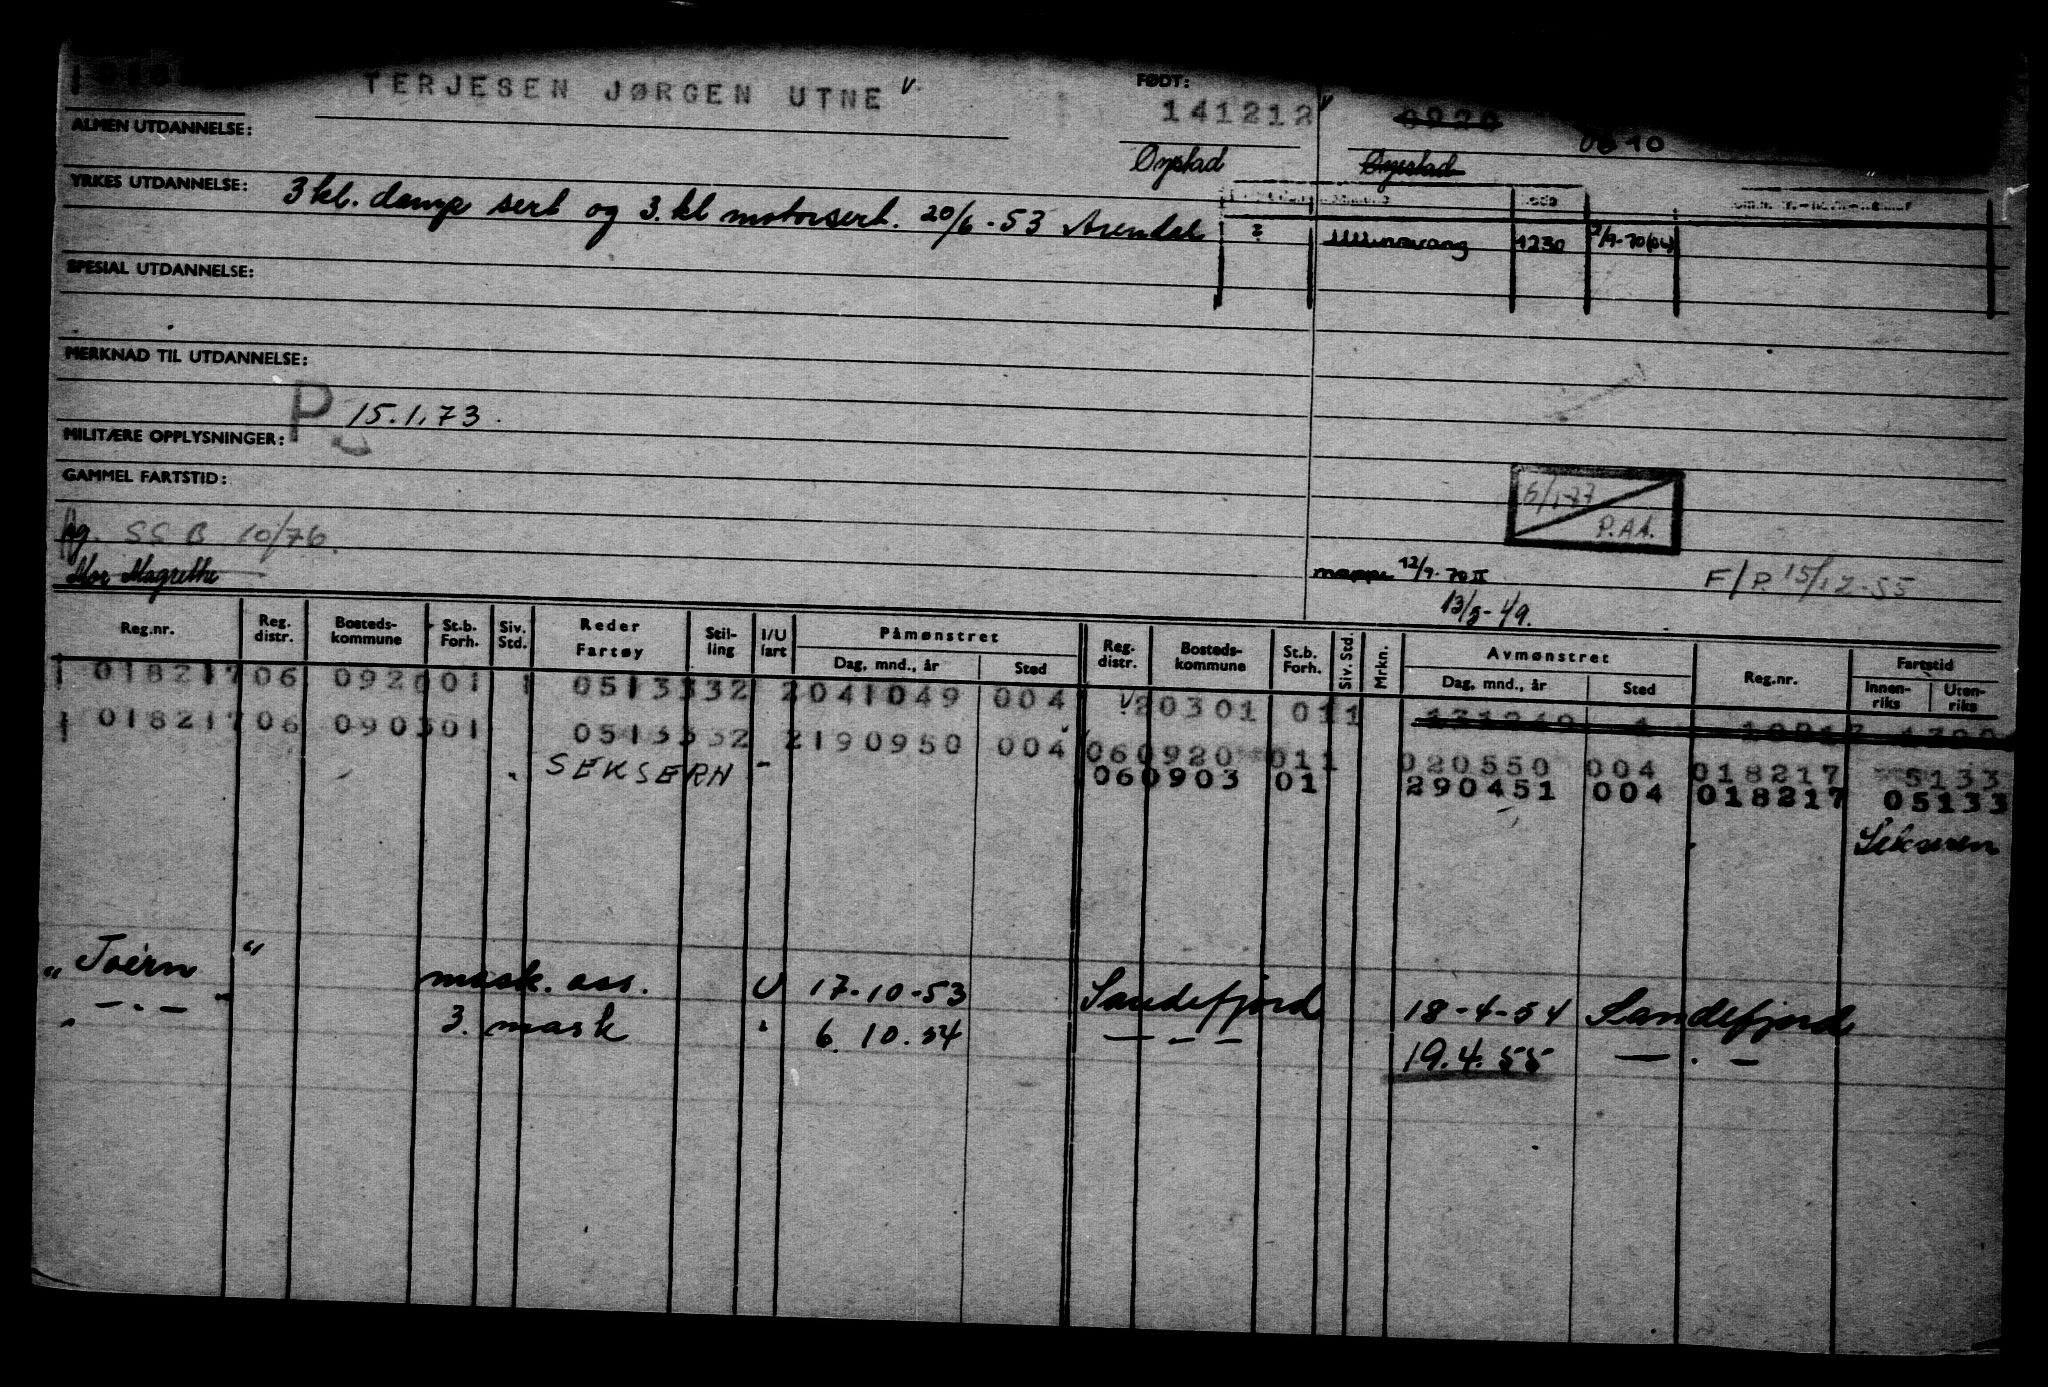 TERJESEN JØRGEN UTNE
FØDT:
141212
0920
0610
ALMEN UTDANNELSE:
Øyestad
Øyestad
YRKES UTDANNELSE:
3 kl. damp sert og 3. kl motorsert. 20/6-53 Arendal
1230
SPESIAL UTDANNELSE:
MERKNAD TIL UTDANNELSE:
P 15.1.73.
MILITÆRE OPPLYSNINGER:
GAMMEL FARTSTID:
6/1-77
P.AA.
SSB 10/76.
Mor Magrethe
mappe 12/9-70 II
F/P. 15/12-55
13/3-49.
Reg.nr. Reg. distr. Bosteds-kommune St.b. Forh. Siv. Std. Reder Fartøy Stil-ling I/U fart Påmønstret Dag, mnd., år Sted Reg. distr. Bosteds-kommune St.b. Forh. Siv. Std. Mrkn. Avmønstret Dag, mnd., år Sted Reg.nr. Fartstid Innen-riks Uten-riks
018217 06 0920 01 1 0513 332 2 041049 004 20301 011
018217 06 0903 01 0513 332 2 190950 004 060920 011 020550 004 018217 5133
SEKSERN - 060903 01 290451 004 018217 05133
Sekseren
" Toern " mask. ass. U 17-10-53 Sandefjord 18-4-54 Sandefjord
" - . - " 3. mask " 6. 10. 54 - - - 19.4.55 - . -